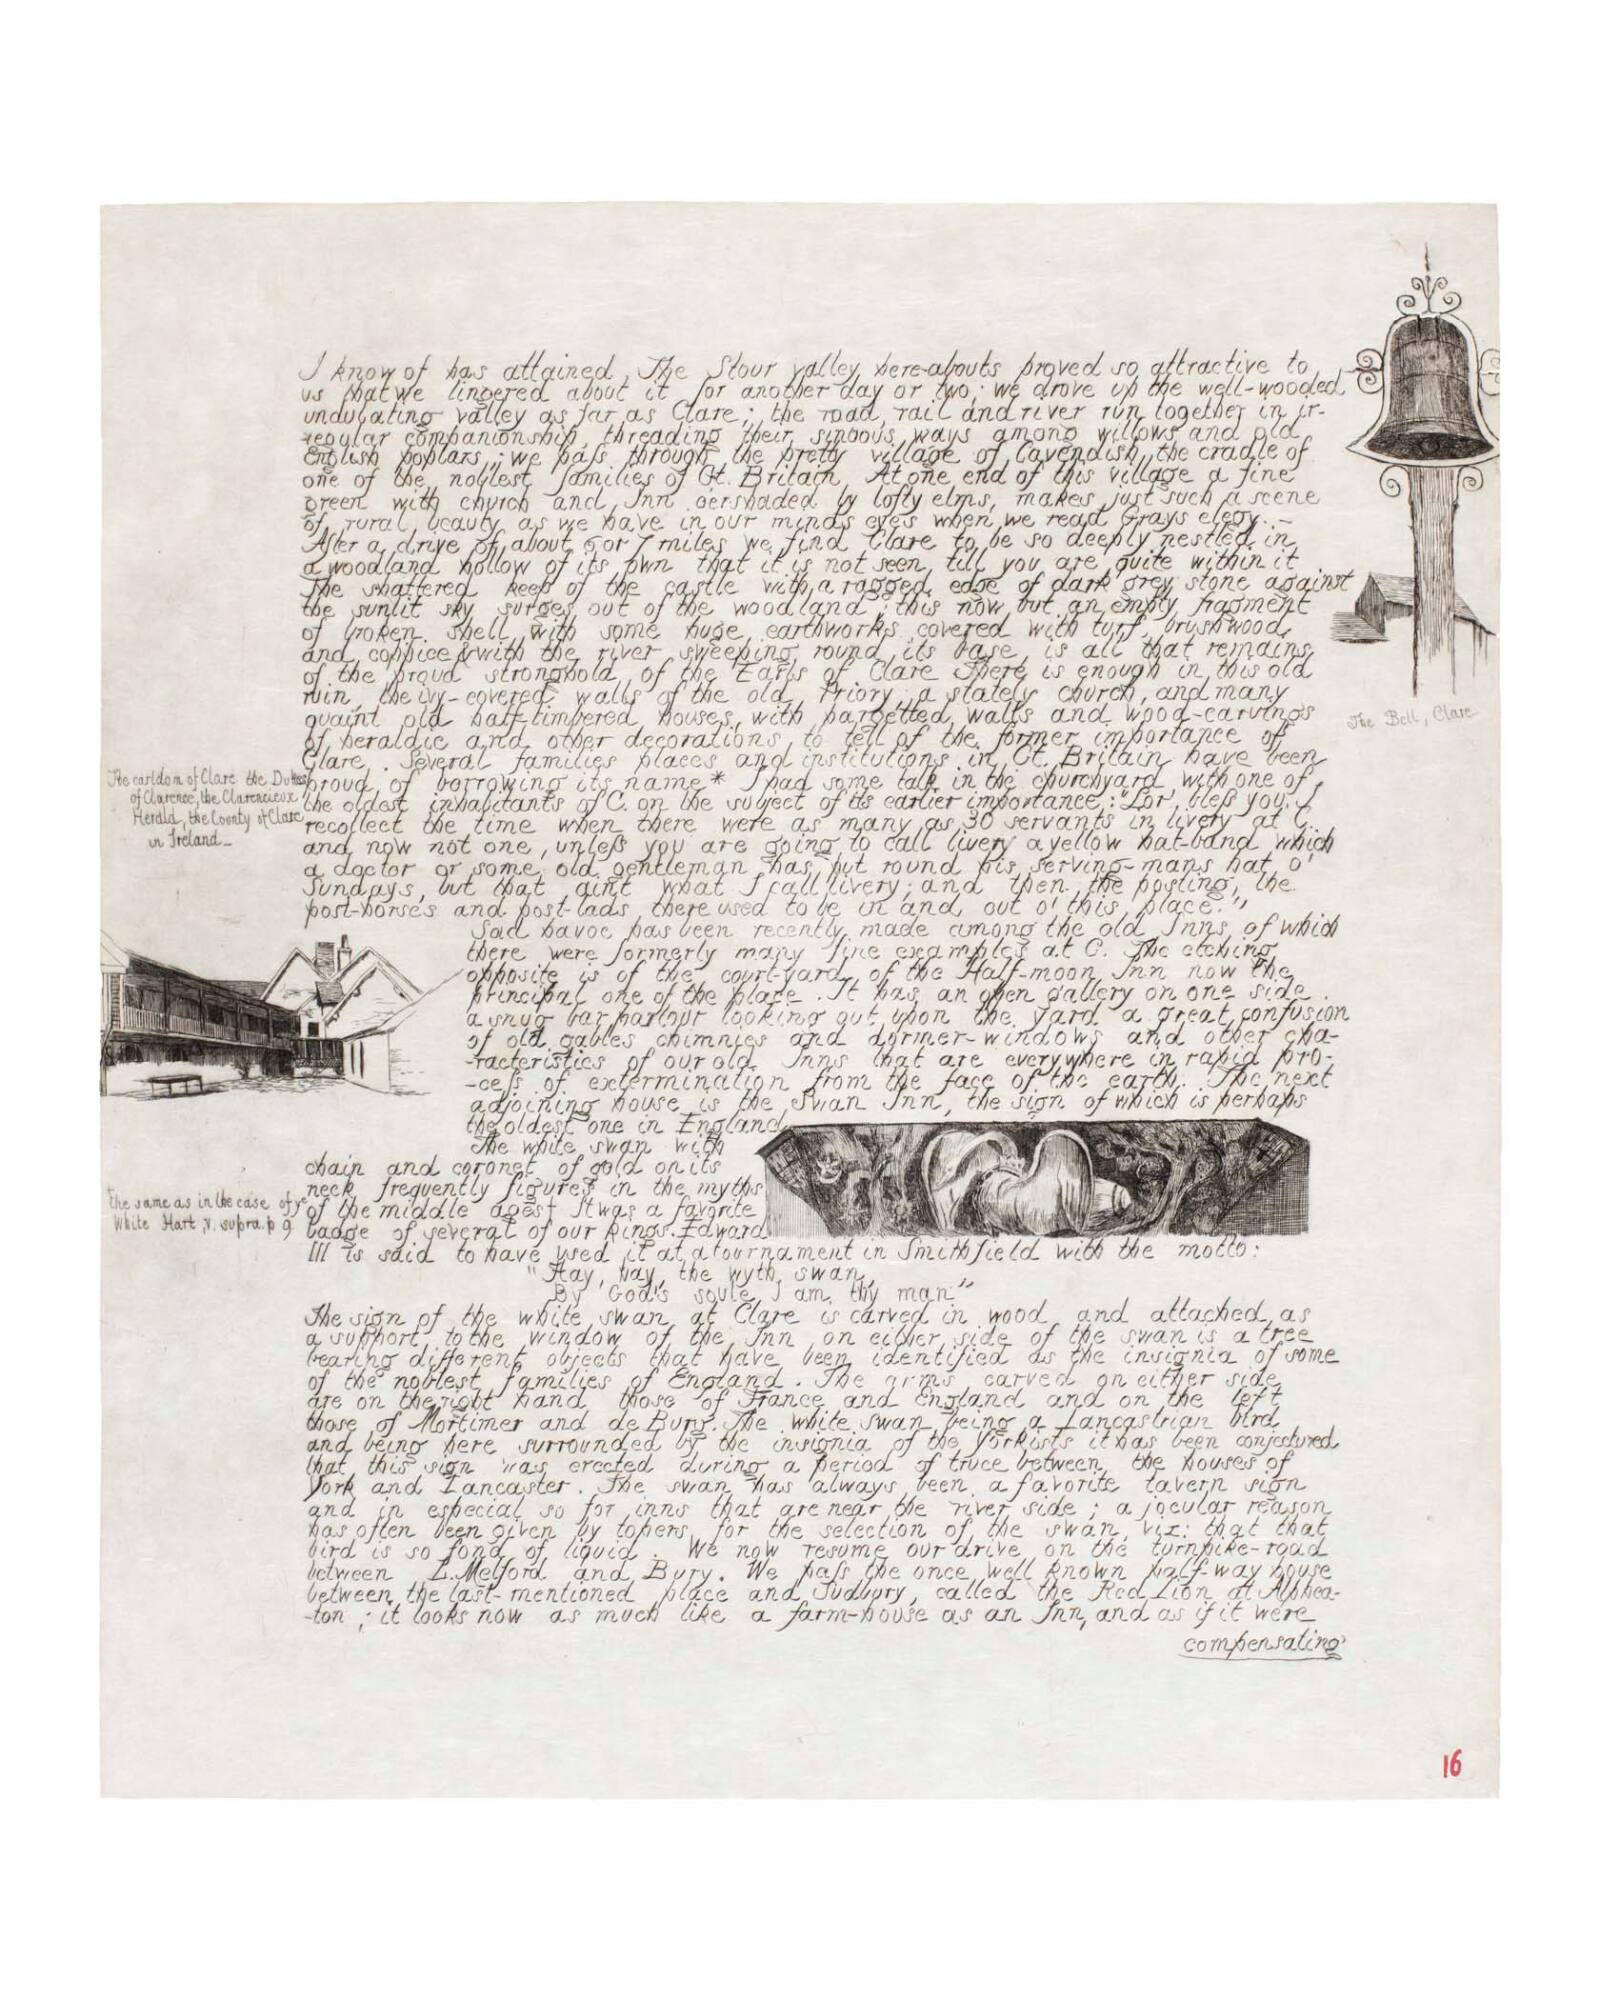 I know of has attained. The Stour valley here-abouts proved so attractive to
us that we lingered about it for another day or two; we drove up the well-wooded
undulating valley as far as Clare; the road, rail and river run together in ir-
-regular companionship, threading their sinuous ways among willows and old
English poplars; we paſs through the pretty village of Cavendish, the cradle of
one of the noblest families of Gt. Britain. At one end of this village a fine
green with church and Inn oershaded by lofty elms, makes just such a scene
of rural beauty as we have in our minds eyes when we read Grays elegy. -
After a drive of about 6 or 7 miles we find Clare to be so deeply nestled in
a woodland hollow of its own that it is not seen till you are quite within it
The shattered keep of the castle with a ragged edge of dark grey stone against
the sunlit sky surges out of the woodland; this now but an empty fragment
of broken shell with some huge earthworks covered with turf, brushwood,
and coppice & with the river sweeping round its base is all that remains
of the proud stronghold of the Earls of Clare There is enough in this old
ruin, the ivy-covered walls of the old Priory, a stately church, and many
quaint old half-timbered houses with pargetted walls and wood-carvings
of heraldic and other decorations to tell of the former importance of
Clare. Several families places and institutions in Gt. Britain have been
proud of borrowing its name * I had some talk in the churchyard with one of
the oldest inhabitants of C. on the subject of its earlier importance: "Lor' bleſs you, I
recollect the time when there were as many as 30 servants in livery at C.
and now not one, unleſs you are going to call livery a yellow hat-band which
a doctor or some old gentleman has put round his serving-mans hat o'
Sundays, but that aint what I call livery; and then the posting, the
post-horses and post-lads there used to be in and out o' this place."
The Bell, Clare
The earldom of Clare the Dukes
of Clarence, the Clarencieux
Herald, the County of Clare
in Ireland -
Sad havoc has been recently made among the old Inns, of which
there were formerly many fine examples at C. The etching
opposite is of the court-yard of the Half-moon Inn now the
principal one of the place. It has an open gallery on one side.
a snug bar parlour looking out upon the yard a great confusion
of old gables chimnies and dormer-windows and other cha-
-racteristics of our old Inns that are everywhere in rapid pro-
-ceſs of extermination from the face of the earth. The next
adjoining house is the Swan Inn, the sign of which is perhaps
the oldest one in England
The white swan with
chain and coronet of gold on its
neck frequently figures in the myths
of the middle ages† It was a favorite
badge of several of our kings. Edward
III is said to have used it at a tournament in Smithfield with the motto:
† the same as in the case of ye
White Hart, v. supra. p 9
"Hay, hay, the wyth swan,
By God's soule I am thy man"
The sign of the white swan at Clare is carved in wood and attached as
a support to the window of the Inn on either side of the swan is a tree
bearing different objects that have been identified as the insignia of some
of the noblest families of England. The arms carved on either side
are on the right hand those of France and England and on the left
those of Mortimer and de Burg. The white swan being a Lancastrian bird
and being here surrounded by the insignia of the Yorkists it has been conjectured
that this sign was erected during a period of truce between the houses of
York and Lancaster. The swan has always been a favorite tavern sign
and in especial so for inns that are near the river side; a jocular reason
has often been given by topers for the selection of the swan, viz: that that
bird is so fond of liquid. We now resume our drive on the turnpike-road
between L. Melford and Bury. We paſs the once well known half-way house
between the last-mentioned place and Sudbury, called the Red Lion at Alphea-
-ton; it looks now as much like a farm-house as an Inn, and as if it were
compensating
16